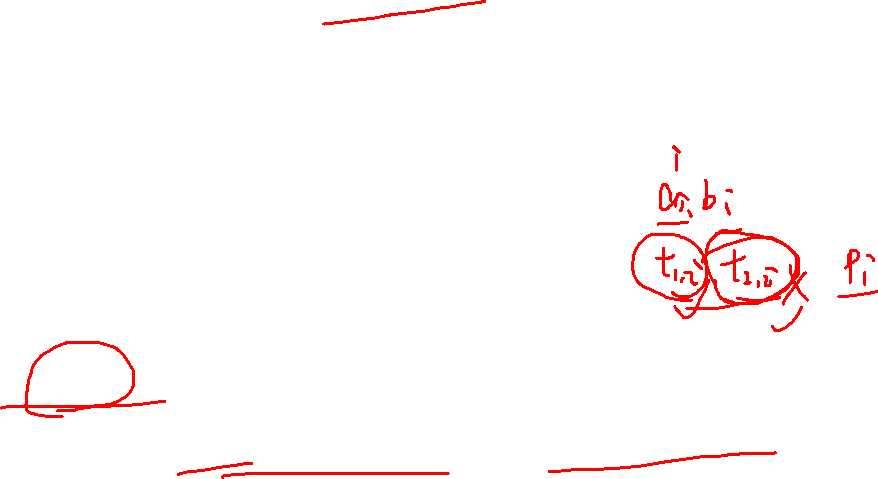 i
a_i b_i
t_{1,i} t_{2,i} P_i